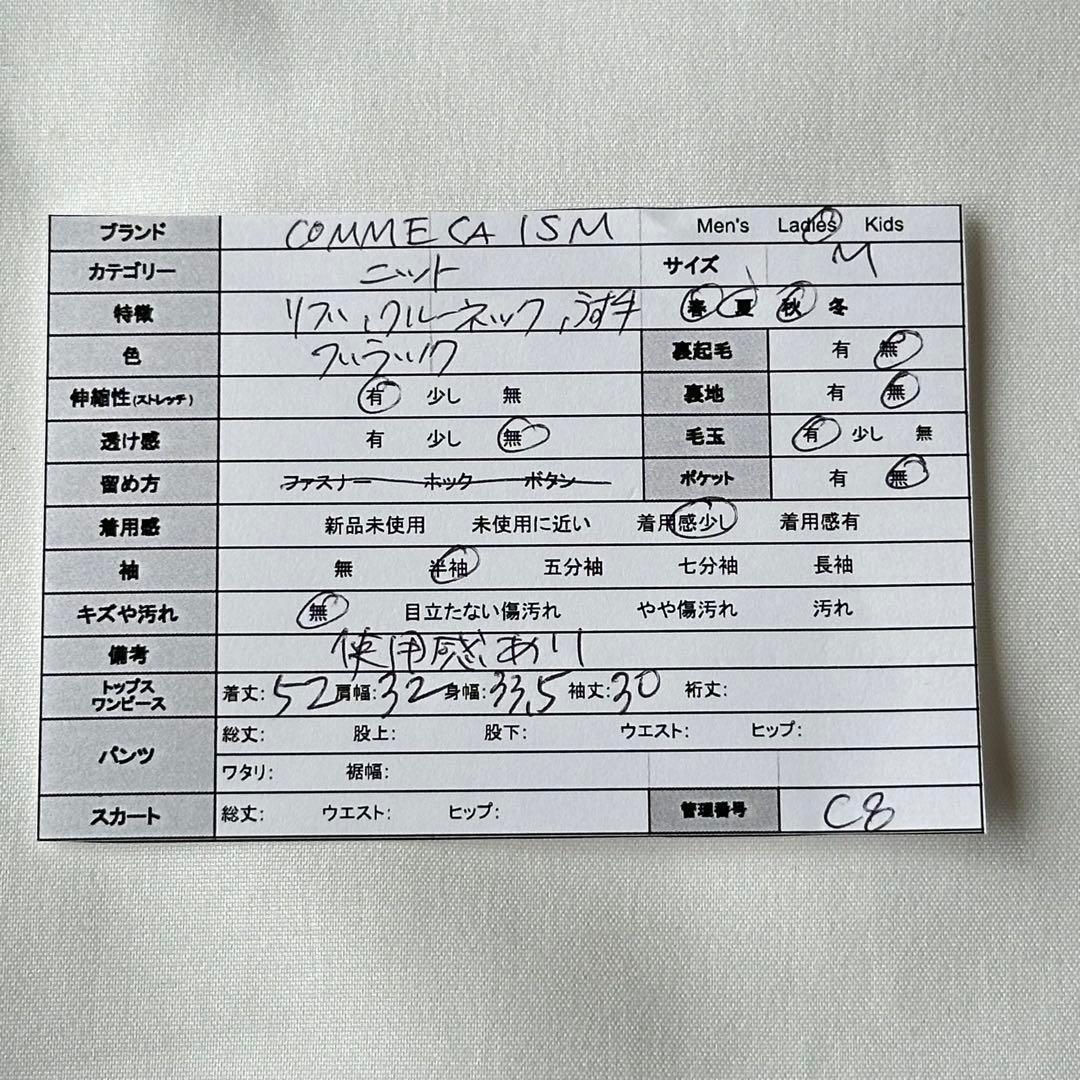 ブランド COMME CA ISM Men's Ladies Kids
カテゴリー ニット サイズ M
特徴 リブ、クルーネック、うす手 春 夏 秋 冬
色 ブラック 裏起毛 有 無
伸縮性(ストレッチ) 有 少し 無 裏地 有 無
透け感 有 少し 無 毛玉 有 少し 無
留め方 ファスナー ホック ボタン ポケット 有 無
着用感 新品未使用 未使用に近い 着用感少し 着用感有
袖 無 半袖 五分袖 七分袖 長袖
キズや汚れ 無 目立たない傷汚れ やや傷汚れ 汚れ
備考 使用感あり
トップス ワンピース 着丈: 52 肩幅: 32 身幅: 33,5 袖丈: 30 裄丈:
パンツ 総丈: 股上: 股下: ウエスト: ヒップ:
ワタリ: 裾幅:
スカート 総丈: ウエスト: ヒップ: 管理番号 C8